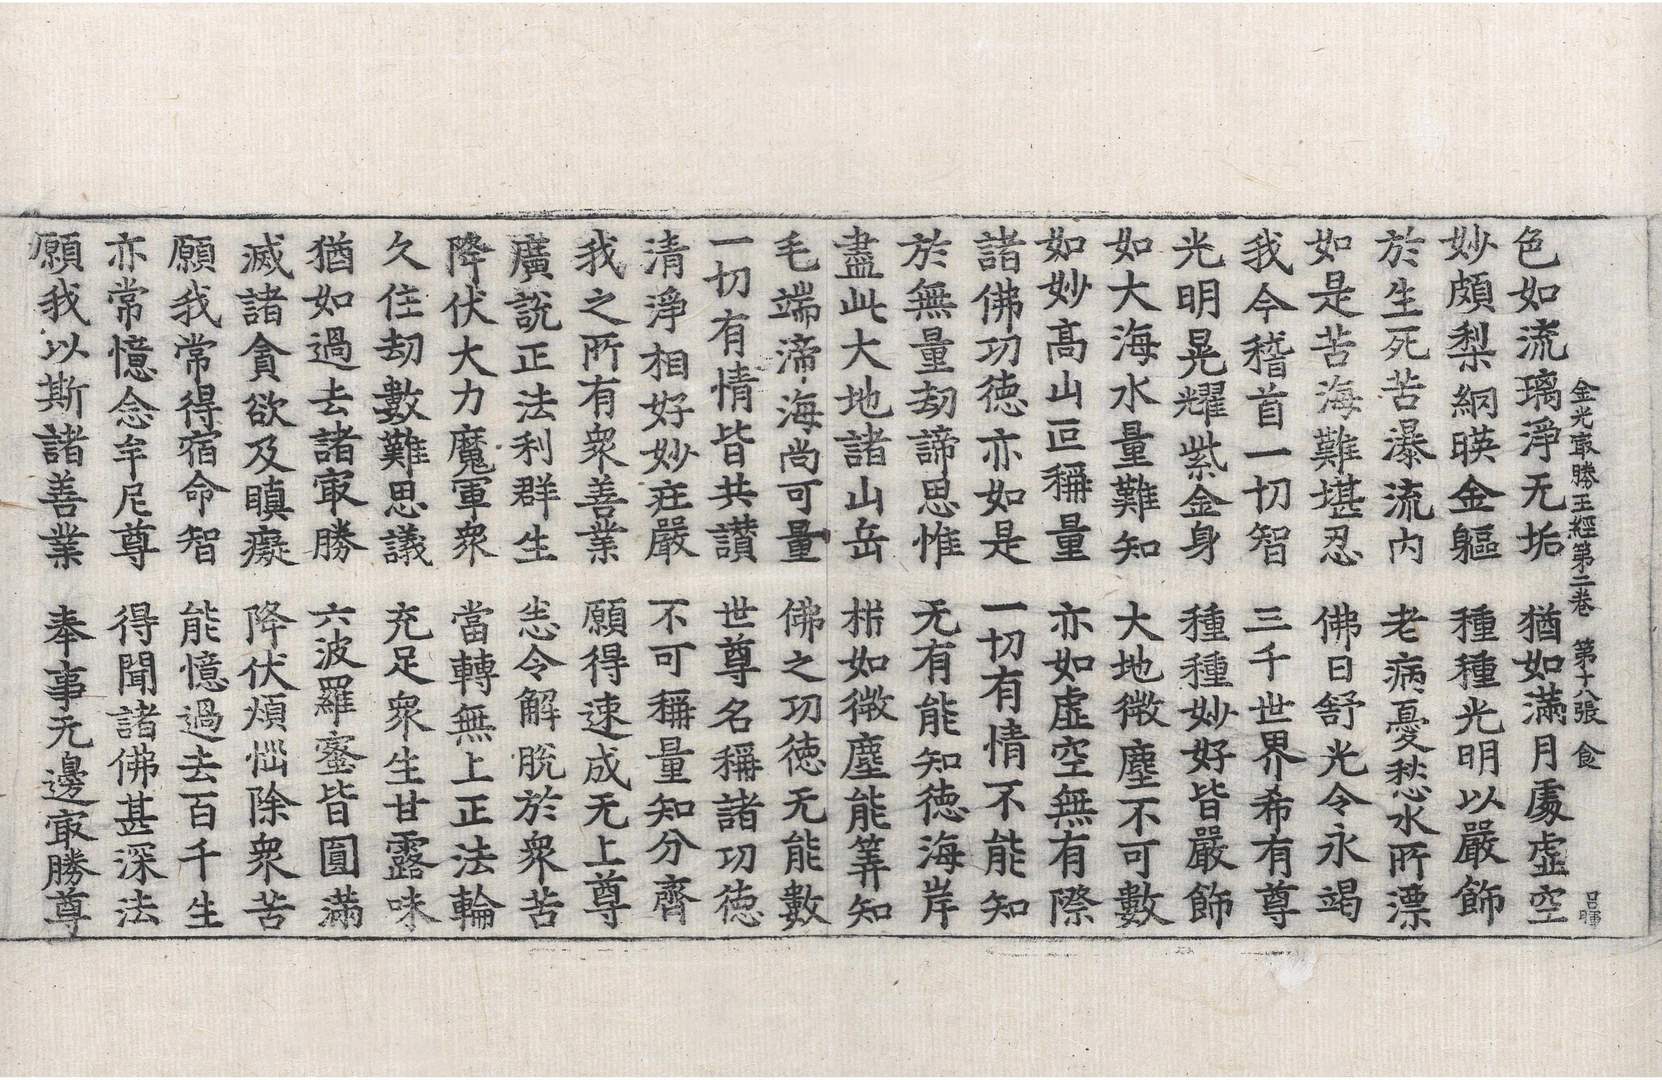 金光㝡勝王經第二卷 第十八張 食
吕暉
色如流璃淨无垢 猶如滿月𠁅虛空
妙頗梨網暎金軀 種種光明以嚴飾
於生死苦瀑流內 老病憂愁水所漂
如是苦海難堪忍 佛日舒光令永竭
我今稽首一切智 三千世界希有尊
光明晃耀紫金身 種種妙好皆嚴飾
如大海水量難知 大地微塵不可數
如妙高山叵稱量 亦如虛空無有際
諸佛功德亦如是 一切有情不能知
於無量劫諦思惟 无有能知德海岸
盡此大地諸山岳 㭊如微塵能筭知
毛端渧海尚可量 佛之功德无能數
一切有情皆共讚 世尊名稱諸功德
清淨相好妙莊嚴 不可稱量知分齊
我之所有衆善業 願得速成无上尊
廣說正法利群生 悉令解脫於衆苦
降伏大力魔軍衆 當轉無上正法輪
久住劫數難思議 充足衆生甘露味
猶如過去諸㝡勝 六波羅蜜皆圓滿
滅諸貪欲及瞋癡 降伏煩惱除衆苦
願我常得宿命智 能憶過去百千生
亦常憶念牟尼尊 得聞諸佛甚深法
願我以斯諸善業 奉事无邊㝡勝尊